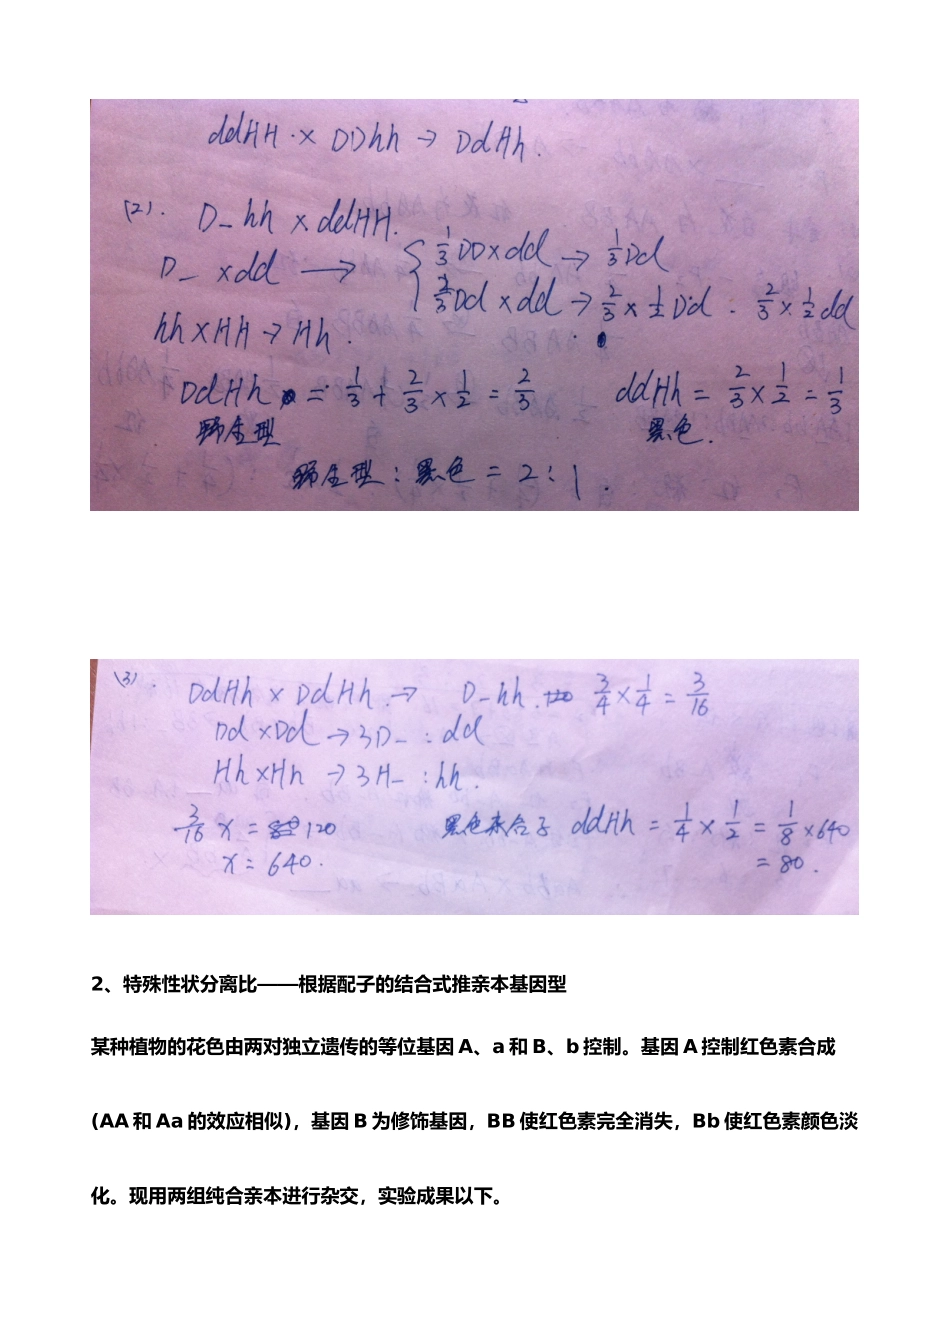 ddHH × DDhh → DdHh.
(2). D_hh × ddHH.
D_ × dd → { 1/3 DD × dd → 1/3 Dd
2/3 Dd × dd → 2/3 × 1/2 Dd . 2/3 × 1/2 dd
hh × HH → Hh .
DdHh = 1/3 + 2/3 × 1/2 = 2/3 ddHh = 2/3 × 1/2 = 1/3
野生型 黑色.
野生型 : 黑色 = 2 : 1 .
(3). DdHh × DdHh → D_hh. 3/4 × 1/4 = 3/16
Dd × Dd → 3D_ : dd
Hh × Hh → 3H_ : hh .
3/16 x = 120 黑色杂合子 ddHh = 1/4 × 1/2 = 1/8 × 640
x = 640 . = 80 .
2、特殊性状分离比——根据配子的结合式推亲本基因型
某种植物的花色由两对独立遗传的等位基因 A、a 和 B、b 控制。基因 A 控制红色素合成
(AA 和 Aa 的效应相似)，基因 B 为修饰基因，BB 使红色素完全消失，Bb 使红色素颜色淡
化。现用两组纯合亲本进行杂交，实验成果以下。